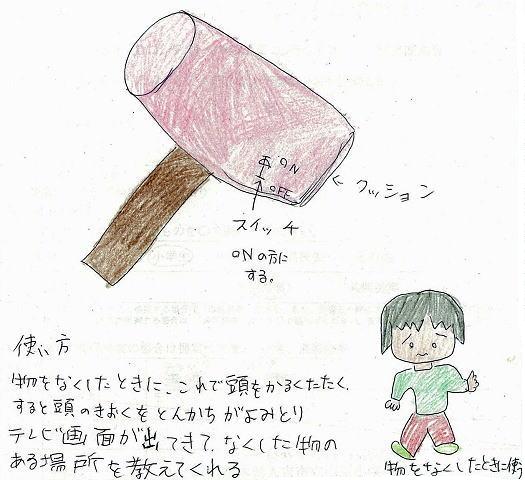 ON
OFF
クッション
スイッチ
ONの方に
する。
使い方
物をなくしたときに、これで頭をかるくたたく、
すると頭のきおくをとんかちがよみとり
テレビ画面が出てきて、なくした物の
ある場所を教えてくれる
物をなくしたときに使う